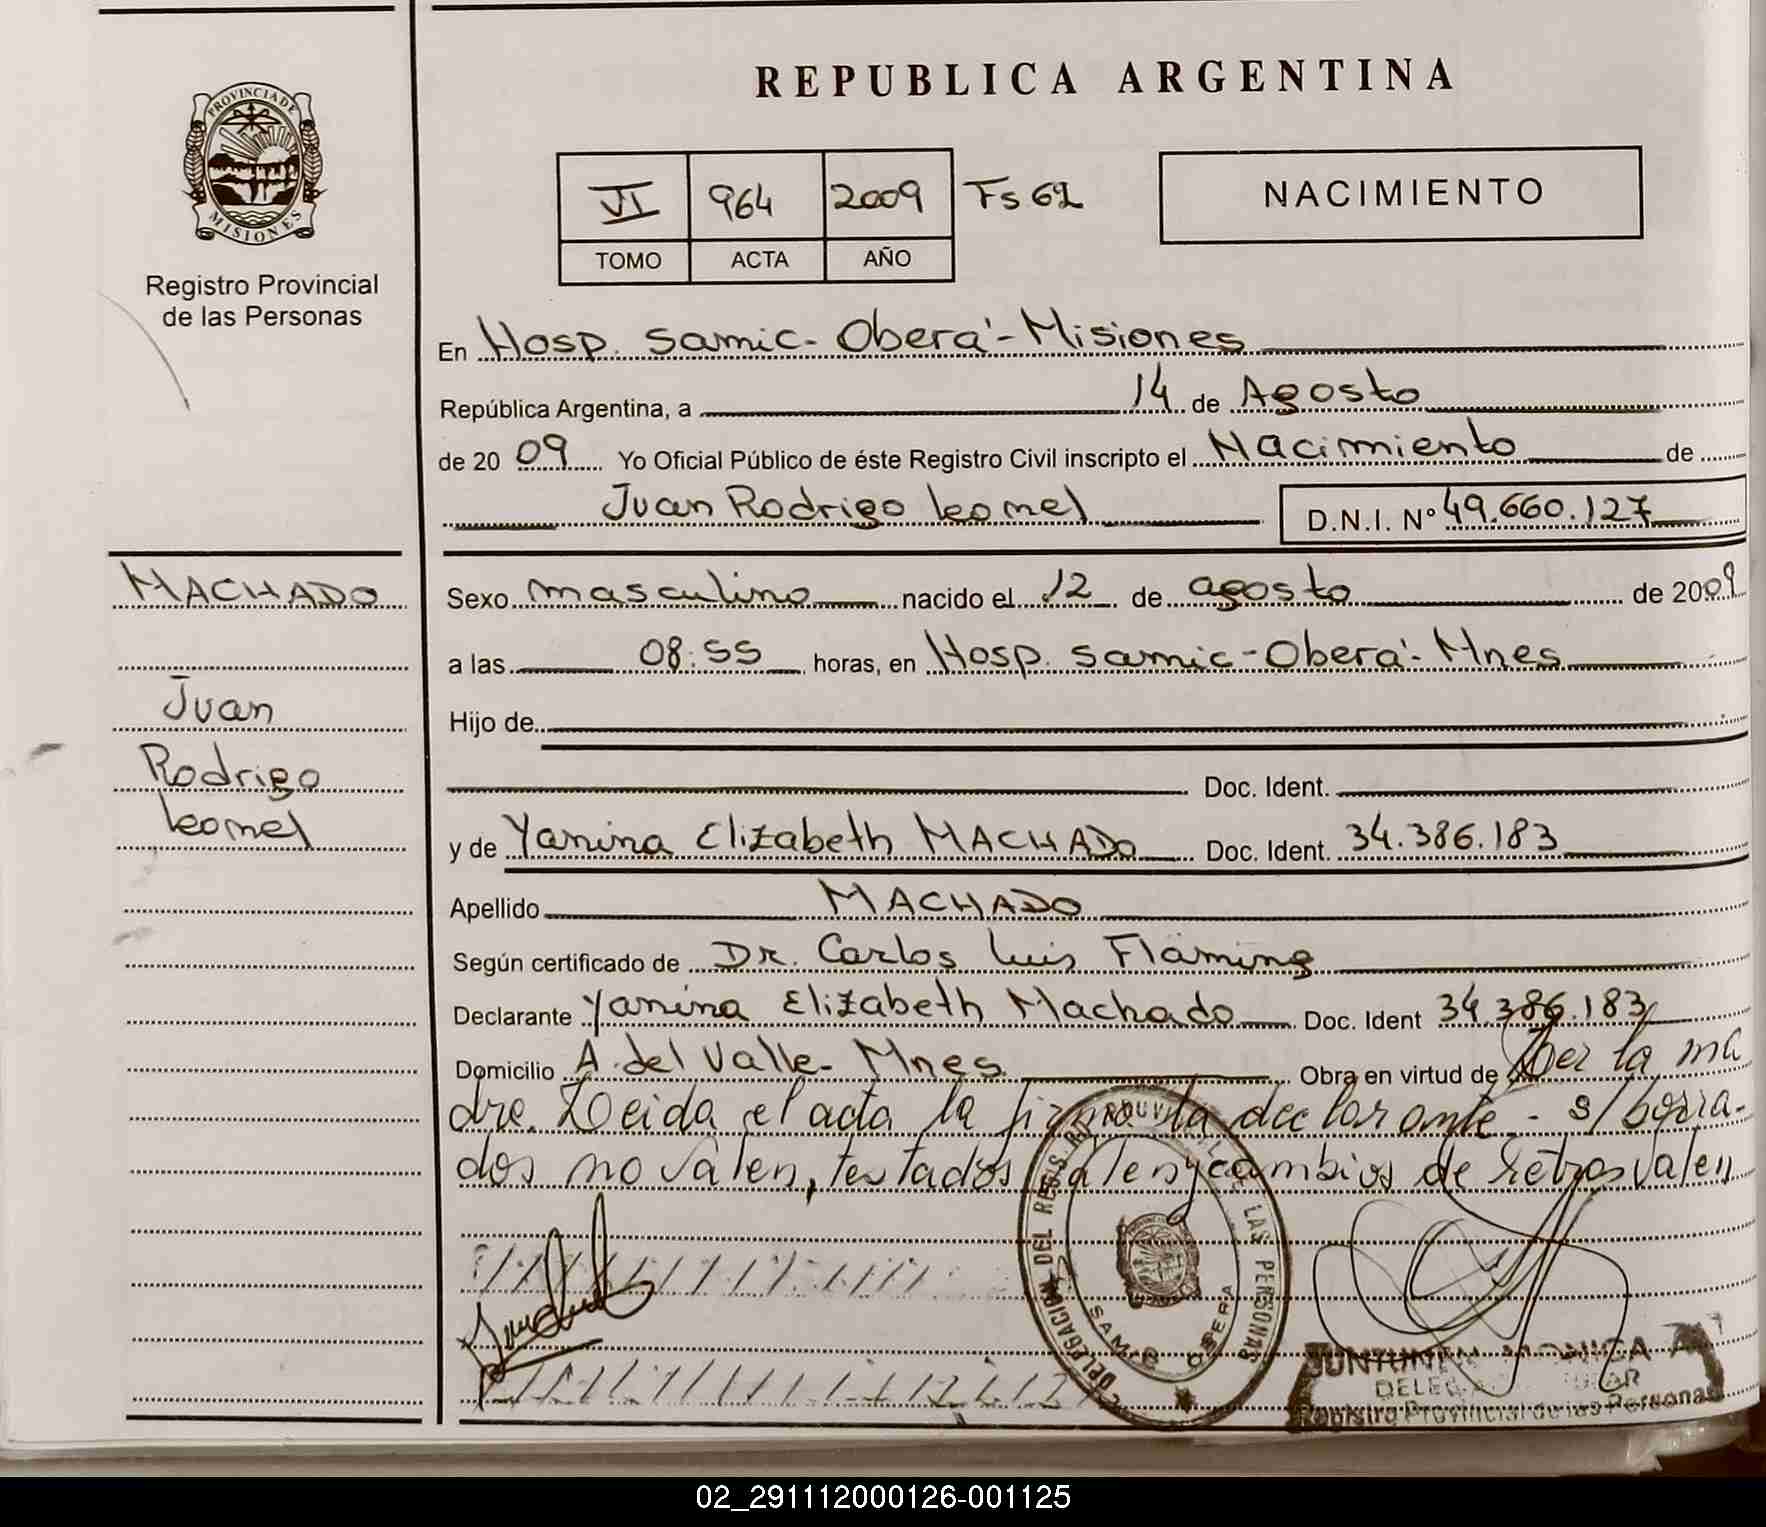 REPUBLICA ARGENTINA
PROVINCIA DE
MISIONES
Registro Provincial
de las Personas
VI 964 2009 Fs 62
TOMO ACTA AÑO
NACIMIENTO
En Hosp. Samic - Oberá - Misiones
República Argentina, a 14 de Agosto
de 2009 Yo Oficial Público de éste Registro Civil inscripto el Nacimiento de
Juan Rodrigo Leonel D.N.I. Nº 49.660.127
MACHADO
Juan
Rodrigo
Leonel
Sexo masculino nacido el 12 de agosto de 2009
a las 08:55 horas, en Hosp. Samic - Oberá - Mnes
Hijo de
Doc. Ident.
y de Yanina Elizabeth MACHADO Doc. Ident. 34.386.183
Apellido MACHADO
Según certificado de Dr. Carlos Luis Flaming
Declarante Yanina Elizabeth Machado Doc. Ident 34.386.183
Domicilio A. del Valle - Mnes. Obra en virtud de ser la ma
dre. Leida el acta la firma la declarante - s/borra-
dos no valen, testados valen y cambios de letras valen
DELEGACION DEL REGISTRO PROVINCIAL DE LAS PERSONAS
SAMIC OBERA
MONICA A
Registro Provincial de las Personas
02_291112000126-001125